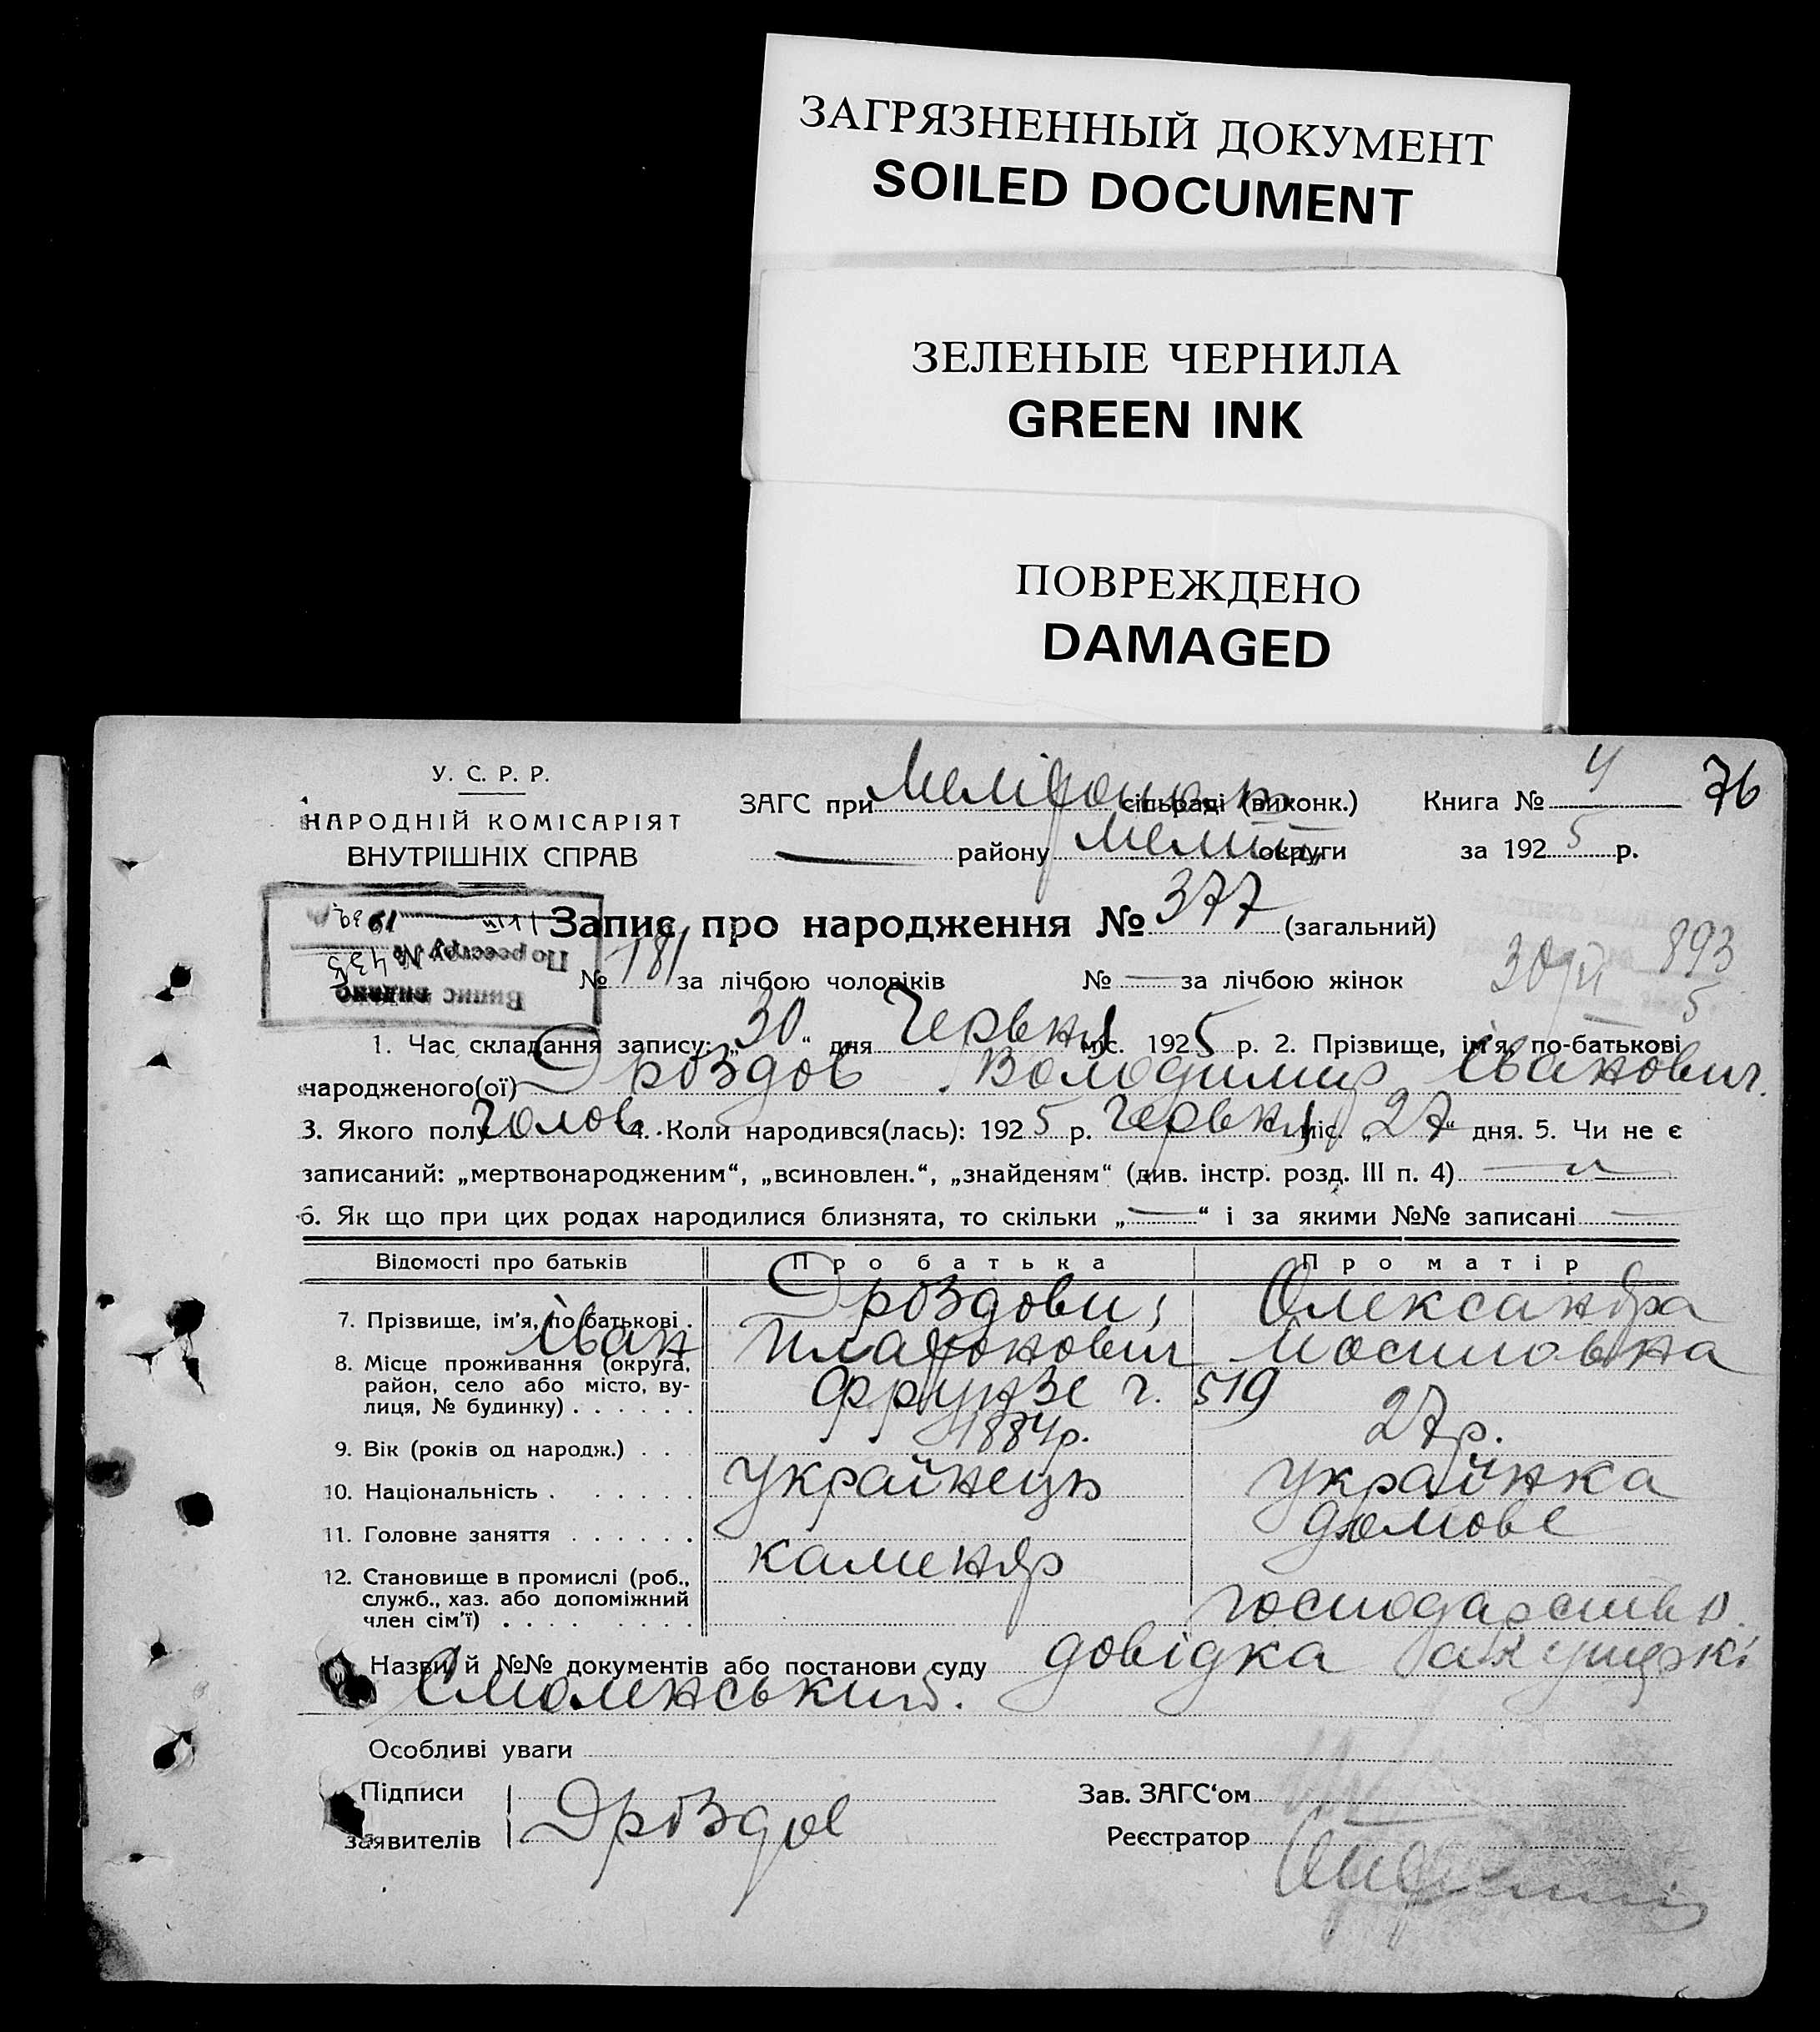 ЗАГРЯЗНЕННЫЙ ДОКУМЕНТ
SOILED DOCUMENT
ЗЕЛЕНЫЕ ЧЕРНИЛА
GREEN INK
ПОВРЕЖДЕНО
DAMAGED
У. С. Р. Р.
НАРОДНІЙ КОМІСАРІЯТ
ВНУТРІШНІХ СПРАВ
ЗАГС при сільраді (виконк.) Книга № 4 76
— району Меліт. округи за 1925 р.
Запис про народження № 377 (загальний)
№ 181 за лічбою чоловіків № — за лічбою жінок
893
5
Випис видано
По реєстру № 435
1. Час складання запису: „30“ дня Червня міс. 1925 р. 2. Прізвище, ім'я, по-батькові
народженого(ої) Дроздов Володимир Іванович.
3. Якого полу чолов. 4. Коли народився(лась): 1925 р. червня міс. „27“ дня. 5. Чи не є
записаний: „мертвонародженим“, „всиновлен.“, „знайденям“ (див. інстр. розд. III п. 4)
6. Як що при цих родах народилися близнята, то скільки „—“ і за якими №№ записані —
Відомості про батьків Про батька Про матір
7. Прізвище, ім'я, по батькові . Дроздови; Олександра
Іван Платонович Йосиповна
8. Місце проживання (округа,
район, село або місто, ву-
лиця, № будинку) . . . . . . Фрунзе ч. 519
9. Вік (років од народж.) . . . 1884р. 27р.
10. Національність . . . . . . українець українка
11. Головне заняття . . . . . . каменяр домове
12. Становище в промислі (роб.,
служб., хаз. або допоміжний
член сім'ї) . . . . . . . . господарство.
Назви й №№ документів або постанови суду довідка акушерки
Смоленський.
Особливі уваги
Підписи
заявителів Дроздов
Зав. ЗАГС'ом
Реєстратор